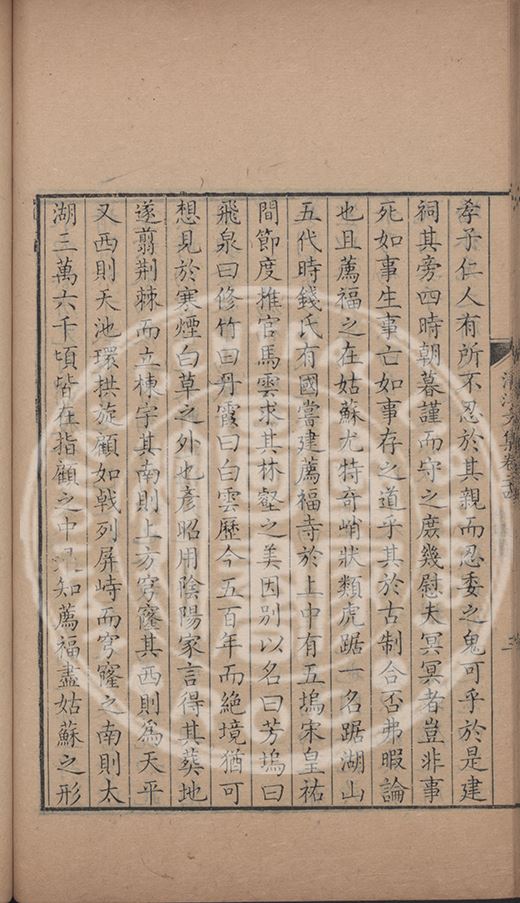 孝子仁人有所不忍於其親而忍委之鬼可乎於是建
祠其旁四時朝暮謹而守之庶幾慰夫冥冥者豈非事
死如事生事亡如事存之道乎其於古制合否弗暇論
也且薦福之在姑蘇尤特奇峭狀類虎踞一名踞湖山
五代時錢氏有國嘗建薦福寺於上中有五塢宋皇祐
間節度推官馬雲求其林壑之美因別以名曰芳塢曰
飛泉曰修竹曰丹霞曰白雲歷今五百年而絕境猶可
想見於寒煙白草之外也彥昭用陰陽家言得其葬地
遂翦荆棘而立棟宇其南則上方穹窿其西則為天平
又西則天池環拱旋顧如戟列屏峙而穹窿之南則太
湖三萬六千頃皆在指顧之中
知薦福盡姑蘇之形